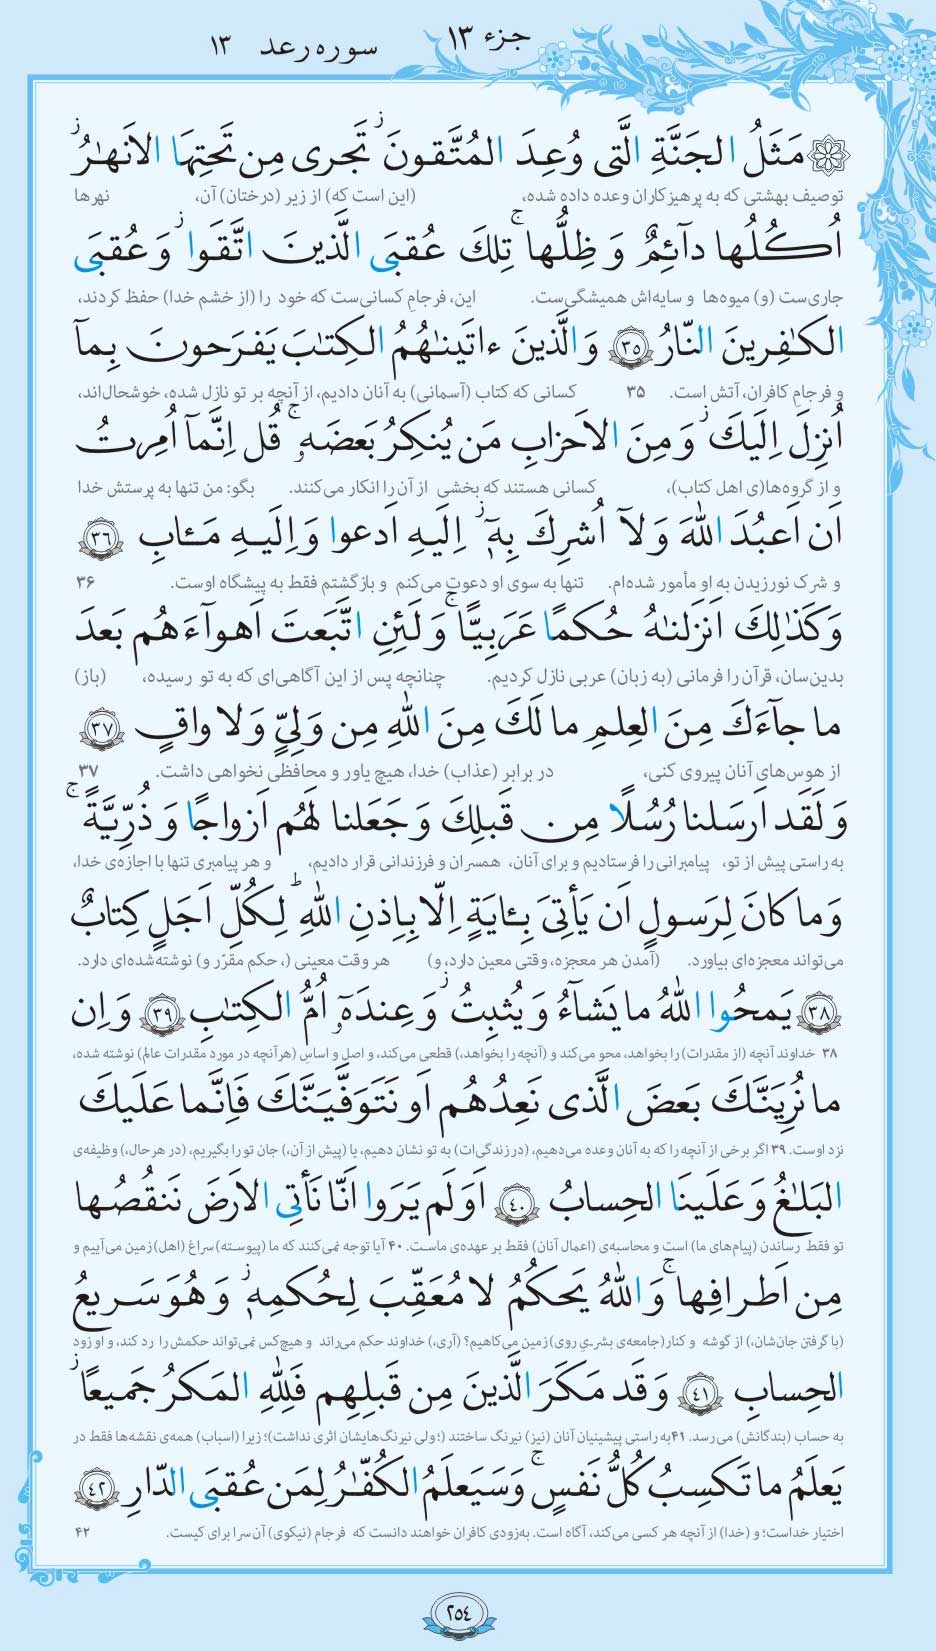 جزء ۱۳
سوره رعد ۱۳
مَثَلُ الجَنَّةِ الَّتی وُعِدَ المُتَّقونَ ۖ تَجری مِن تَحتِهَا الاَنهٰرُ ۖ
توصیف بهشتی که به پرهیزکاران وعده داده شده، (این است که) از زیر (درختان) آن، نهرها
اُکُلُها دآئِمٌ وَ ظِلُّها ۚ تِلكَ عُقبَی الَّذینَ اتَّقَوا ۖ وَ عُقبَی
جاری‌ست (و) میوه‌ها و سایه‌اش همیشگی‌ست. این، فرجامِ کسانی‌ست که خود را (از خشم خدا) حفظ کردند،
الکٰفِرینَ النّارُ ﴿۳۵﴾ وَ الَّذینَ ءاتَینٰهُمُ الکِتٰبَ یَفرَحونَ بِمآ
و فرجامِ کافران، آتش است. ۳۵ کسانی که کتاب (آسمانی) به آنان دادیم، از آنچه بر تو نازل شده، خوشحال‌اند،
اُنزِلَ اِلَیكَ ۖ وَ مِنَ الاَحزابِ مَن یُنکِرُ بَعضَهٗ ۚ قُل اِنَّمآ اُمِرتُ
و از گروه‌ها(ی اهل کتاب)، کسانی هستند که بخشی از آن را انکار می‌کنند. بگو: من تنها به پرستش خدا
اَن اَعبُدَ اللّٰهَ وَ لآ اُشرِكَ بِهٖٓ ۚ اِلَیهِ اَدعوا وَ اِلَیهِ مَـٔابِ ﴿۳۶﴾
و شرک نورزیدن به او مأمور شده‌ام. تنها به سوی او دعوت می‌کنم و بازگشتم فقط به پیشگاه اوست. ۳۶
وَ کَذٰلِكَ اَنزَلنٰهُ حُکمًا عَرَبِیًّا ۚ وَ لَئِنِ اتَّبَعتَ اَهوآءَهُم بَعدَ
بدین‌سان، قرآن را فرمانی (به زبان) عربی نازل کردیم. چنانچه پس از این آگاهی‌ای که به تو رسیده، (باز)
ما جآءَكَ مِنَ العِلمِ ما لَكَ مِنَ اللّٰهِ مِن وَلِیٍّ وَ لا واقٍ ﴿۳۷﴾
از هوس‌های آنان پیروی کنی، در برابر (عذاب) خدا، هیچ یاور و محافظی نخواهی داشت. ۳۷
وَ لَقَد اَرسَلنا رُسُلًا مِن قَبلِكَ وَ جَعَلنا لَهُم اَزواجًا وَ ذُرِّیَّةً ۚ
به راستی پیش از تو، پیامبرانی را فرستادیم و برای آنان، همسران و فرزندانی قرار دادیم، و هر پیامبری تنها با اجازه‌ی خدا،
وَ ما کانَ لِرَسولٍ اَن یَأتِیَ بِـٔایَةٍ اِلّا بِاِذنِ اللّٰهِ ۗ لِکُلِّ اَجَلٍ کِتابٌ
می‌تواند معجزه‌ای بیاورد. (آمدن هر معجزه، وقتی معین دارد، و) هر وقت معینی (، حکم مقرّر و) نوشته‌شده‌ای دارد.
﴿۳۸﴾ یَمحُوا اللّٰهُ ما یَشآءُ وَ یُثبِتُ ۖ وَ عِندَهٗٓ اُمُّ الکِتٰبِ ﴿۳۹﴾ وَ اِن
۳۸ خداوند آنچه (از مقدرات) را بخواهد، محو می‌کند و (آنچه را بخواهد،) قطعی می‌کند، و اصل و اساسِ (هرآنچه در مورد مقدرات عالم) نوشته شده،
ما نُرِیَنَّكَ بَعضَ الَّذی نَعِدُهُم اَو نَتَوَفَّیَنَّكَ فَاِنَّما عَلَیكَ
نزد اوست. ۳۹ اگر برخی از آنچه را که به آنان وعده می‌دهیم، (در زندگی‌ات) به تو نشان دهیم، یا (پیش از آن،) جان تو را بگیریم، (در هرحال،) وظیفه‌ی
البَلٰغُ وَ عَلَینَا الحِسابُ ﴿۴۰﴾ اَوَ لَم یَرَوا اَنّا نَأتِی الاَرضَ نَنقُصُها
تو فقط رساندن (پیام‌های ما) است و محاسبه‌ی (اعمال آنان) فقط بر عهده‌ی ماست. ۴۰ آیا توجه نمی‌کنند که ما (پیوسته) سراغ (اهل) زمین می‌آییم و
مِن اَطرافِها ۚ وَ اللّٰهُ یَحکُمُ لا مُعَقِّبَ لِحُکمِهٖ ۚ وَ هُوَ سَریعُ
(با گرفتن جان‌شان،) از گوشه و کنار (جامعه‌ی بشری روی) زمین می‌کاهیم؟ (آری،) خداوند حکم می‌راند و هیچ‌کس نمی‌تواند حکمش را رد کند، و او زود
الحِسابِ ﴿۴۱﴾ وَ قَد مَکَرَ الَّذینَ مِن قَبلِهِم فَلِلّٰهِ المَکرُ جَمیعًا ۖ
به حساب (بندگانش) می‌رسد. ۴۱ به راستی پیشینیان آنان (نیز) نیرنگ ساختند (؛ ولی نیرنگ‌هایشان اثری نداشت)؛ زیرا (اسباب) همه‌ی نقشه‌ها فقط در
یَعلَمُ ما تَکسِبُ کُلُّ نَفسٍ ۚ وَ سَیَعلَمُ الکُفّٰرُ لِمَن عُقبَی الدّارِ ﴿۴۲﴾
اختیار خداست؛ و (خدا) از آنچه هر کسی می‌کند، آگاه است. به‌زودی کافران خواهند دانست که فرجام (نیکوی) آن سرا برای کیست. ۴۲
۲۵۴